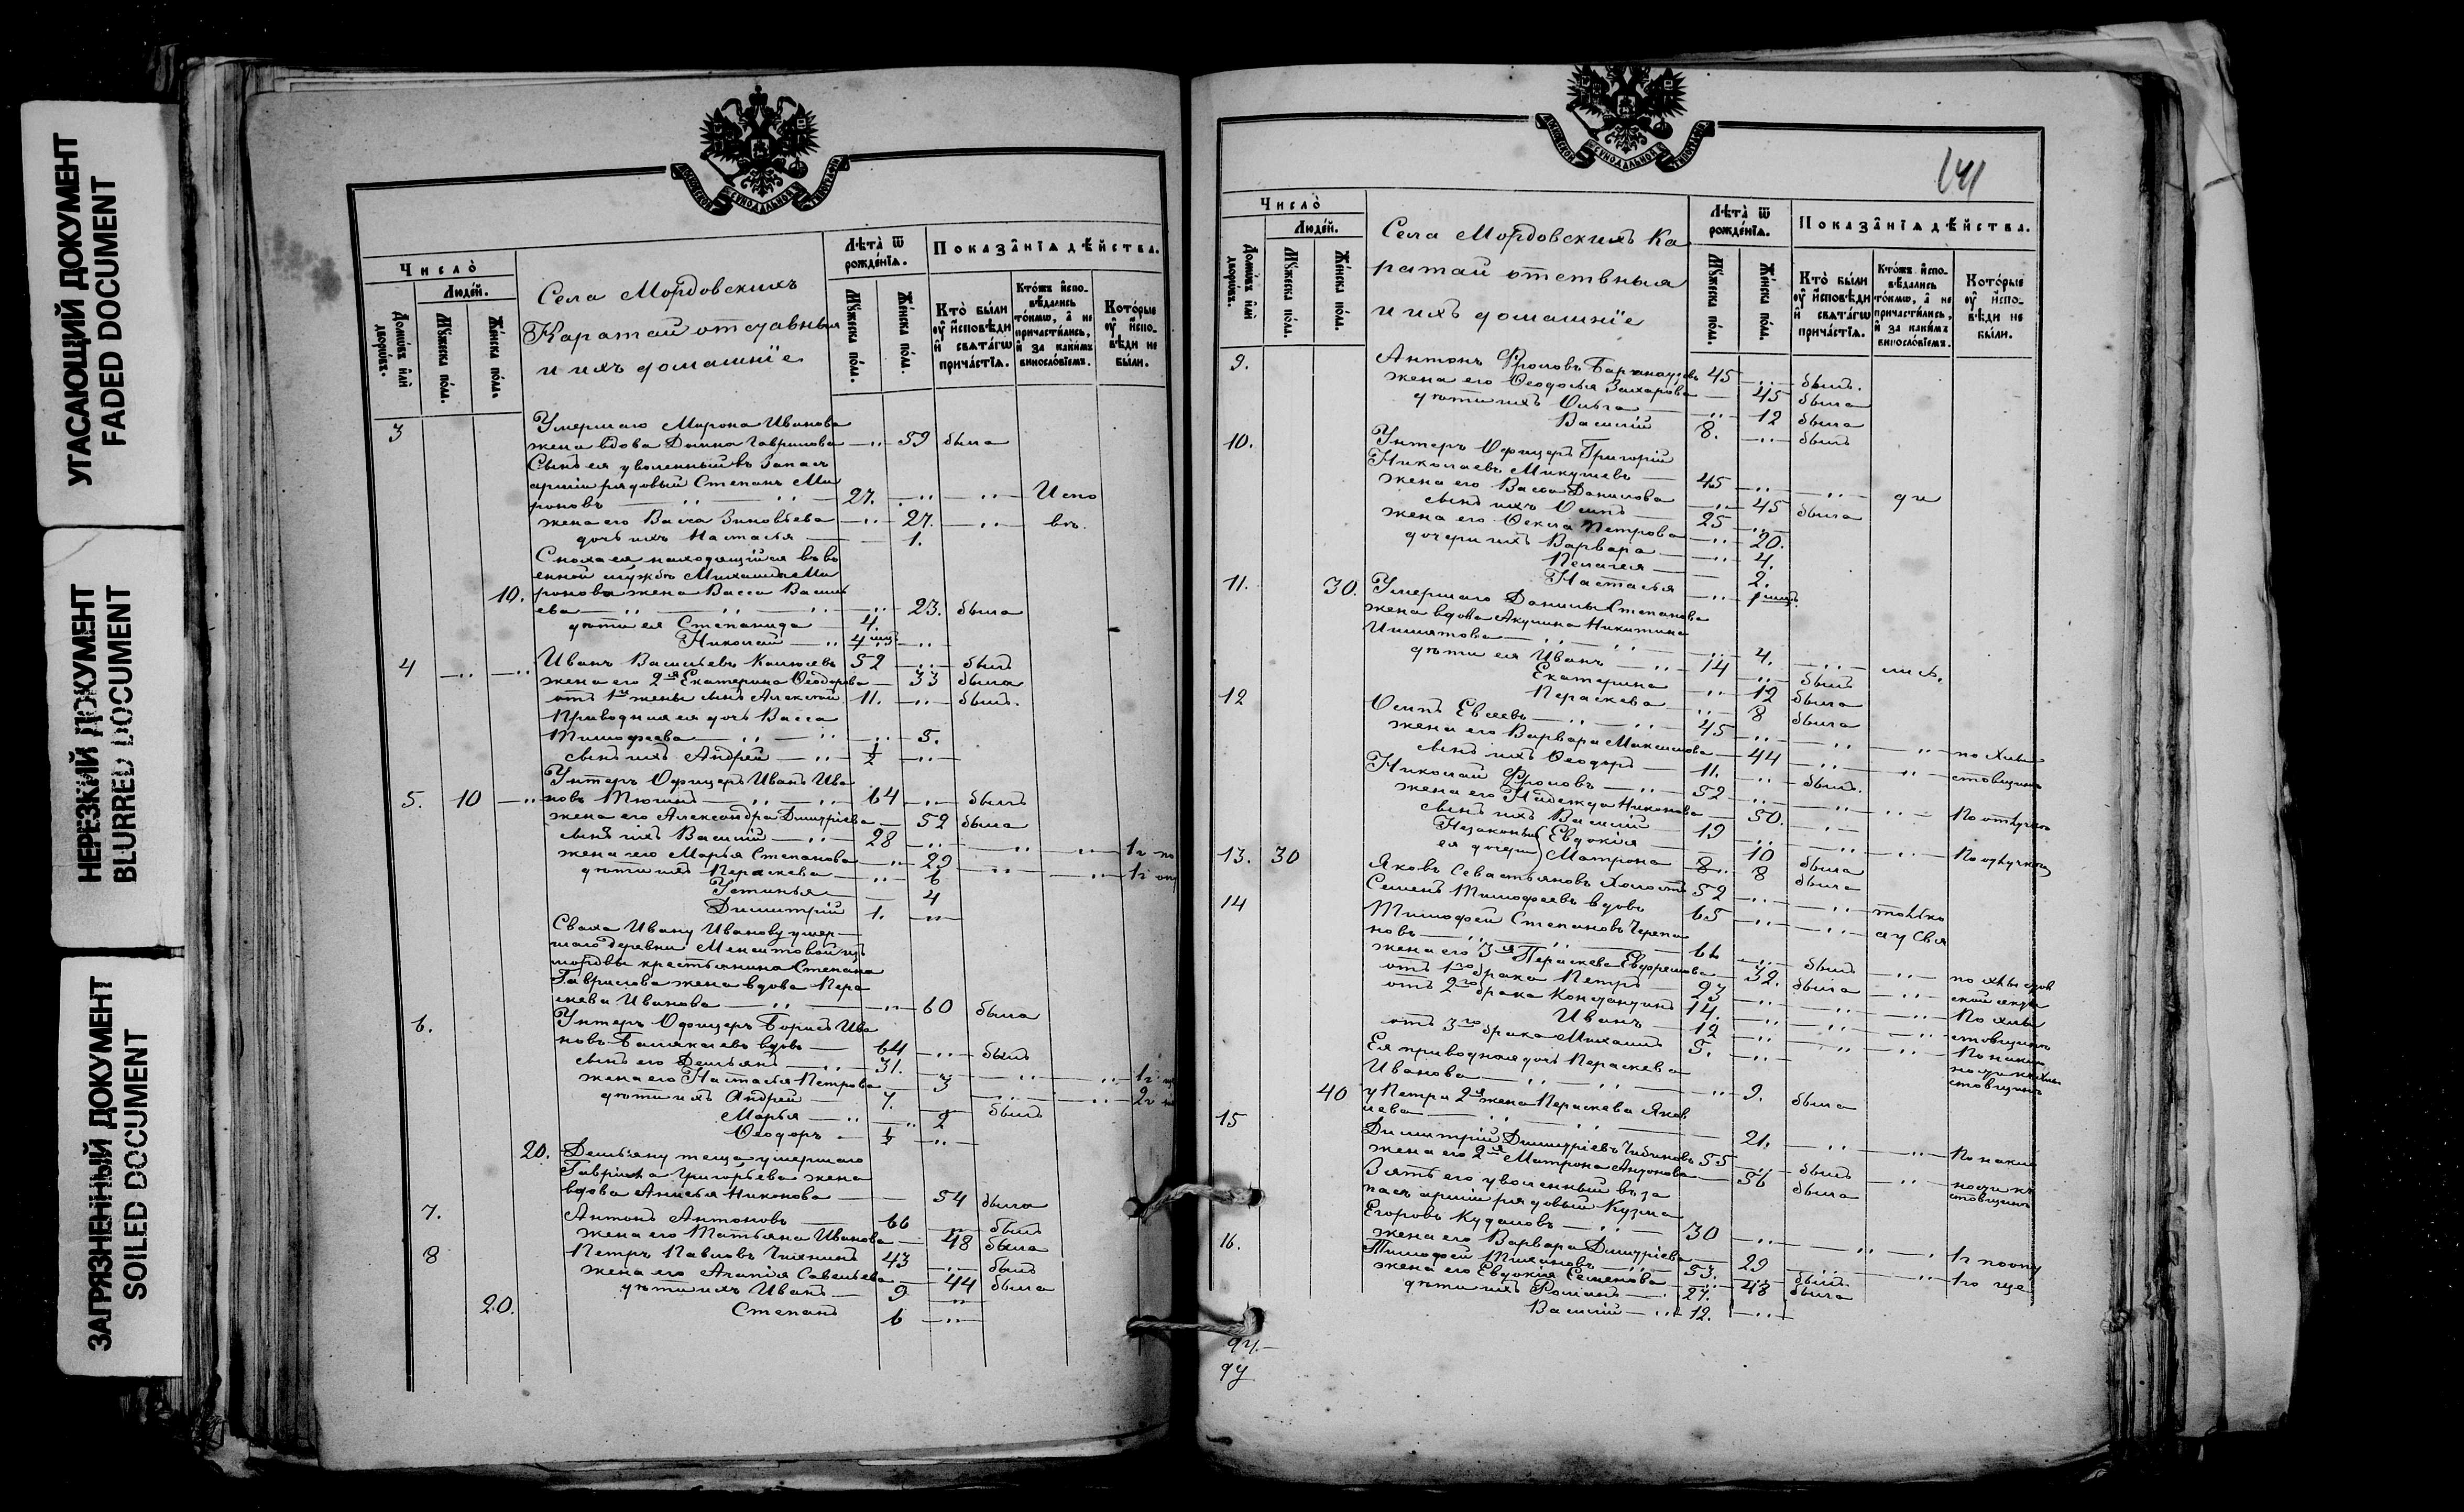 УГАСАЮЩИЙ ДОКУМЕНТ
FADED DOCUMENT
НЕРЕЗКИЙ ДОКУМЕНТ
BLURRED DOCUMENT
ЗАГРЯЗНЕННЫЙ ДОКУМЕНТ
SOILED DOCUMENT
Число̀
Людей.
Домовъ или дворовъ.
Мꙋжеска полꙋ.
Женска полꙋ.
Села Мордовскихъ
Каратай отставныя
и ихъ домашнїе
Лѣта̀ ѿ рожденїѧ.
Мꙋжеска полꙋ.
Женска полꙋ.
Показанїѧ дѣйства.
Кто̀ были оу҆ исповѣди и свѧтагѡ причастїѧ.
Ктожъ исповѣдались токмѡ, а не причастились, и за какимъ винословїемъ.
Которые оу҆ исповѣди не были.
3 Умершаго Мирона Иванова
жена вдова Домна Гаврилова — 59 была
Сынъ ея уволенный въ запасъ
арміи рядовый Степанъ Ми
роновъ 27. Испо
жена его Васса Зиновьева 27. вѣ.
дочь ихъ Настасья 1.
Сноха ея находящійся въ во
енной службѣ Михаила Ми
10. ронова жена Васса Васил
ева 23. была
дѣти ея Степанида 4.
Николай 4 мцъ
4 Иванъ Васильевъ 52 былъ
жена его 2я Екатерина Ѳеодорова 33 была
отъ 1й жены сынъ Алексѣй 11. былъ.
Приводная ея дочь Васса
Тимофеева 5.
сынъ ихъ Андрей ½
Унтеръ Офицеръ Иванъ Ива
5. 10 новъ Тюгинъ 64 былъ
жена его Александра Димитріева 52 была
сынъ ихъ Василій 28 1г по
жена его Марья Степанова 29 1г отл
дѣти ихъ Параскева 6
Устинья 4
Димитрій 1.
Сваха Ивану Иванову умер
шаго деревни
крестьянина Степана
Гаврилова жена вдова Пара
скева Иванова 60 была
6. Унтеръ Офицеръ Борисъ Ива
новъ вдовъ 64 былъ
сынъ его Демьянъ 31. 1г
жена его Настасья Петрова 3 2г
дѣти ихъ Андрей 7. былъ
Марья 2
Ѳеодоръ ½
20. Демьяну теща умершаго
Гаврила Григорьева жена
вдова Анисья Никонова 54 была
7. Антонъ Антоновъ 66 былъ
жена его Татьяна Иванова 48 была
8 Петръ Павловъ 43 былъ
жена его Агапія Савельева 44 была
дѣти ихъ Иванъ 9
20. Степанъ 6
141
Число̀
Людей.
Домовъ или дворовъ.
Мꙋжеска полꙋ.
Женска полꙋ.
Села Мордовскихъ Ка
ратай отствныя
и ихъ домашнїе
Лѣта̀ ѿ рожденїѧ.
Мꙋжеска полꙋ.
Женска полꙋ.
Показанїѧ дѣйства.
Кто̀ были оу҆ исповѣди и свѧтагѡ причастїѧ.
Ктожъ исповѣдались токмѡ, а не причастились, и за какимъ винословїемъ.
Которые оу҆ исповѣди не были.
9. Антонъ Фроловъ 45 былъ.
жена его Ѳеодосья Захарова 45 была
дѣти ихъ Ольга 12 была
Василій 8. былъ
10. Унтеръ Офицеръ Григорій
Николаевъ Микушевъ 45
жена его Васса Данилова 45 была
сынъ ихъ Осипъ 25
жена его Ѳекла Петрова 20.
дочери ихъ Варвара 4.
Пелагея 2.
Настасья 1 мцъ.
11. 30. Умершаго Данилы Степанова
жена вдова Акулина Никитина
4. лись.
дѣти ея Иванъ 14 былъ
Екатерина 12 была
Параскева 8 была
12 Осипъ Евсеевъ 45 по Хлы
жена его Варвара Максимова 44 стовщинѣ
сынъ ихъ Ѳеодоръ 11. былъ.
Николай Фроловъ 52
жена его Надежда Никонова 50.
сынъ ихъ Василій 19
Незаконныя Евдокія 10 была
13. 30 ея дочери Матрона 8 8 была
Яковъ Севастьяновъ Холостъ 52
Семенъ Тимофеевъ вдовъ 65
14 Тимофей Степановъ Черепа
новъ 66 былъ
жена его 3я Параскева Ефремова 32. была
отъ 1го брака Петръ 23 По хлы
отъ 2го брака Константинъ 14. стовщинѣ
Иванъ 12
отъ 3го брака Михаилъ 5.
Ея приводная дочь Параскева
Иванова 9. была
40 у Петра 2я жена Параскева Яков
лева 21.
15 Димитрій Димитріевъ 55 былъ
жена его 2я Матрона Антонова 56 была
Зять его уволенный въ за
пасъ арміи рядовый Кузма
Егоровъ Кудашовъ 30
жена его Варвара Димитріева 29
16. Тимофей 53. былъ
жена его Евдокія Семенова 48 была
дѣти ихъ Романъ 27.
Василій 12.